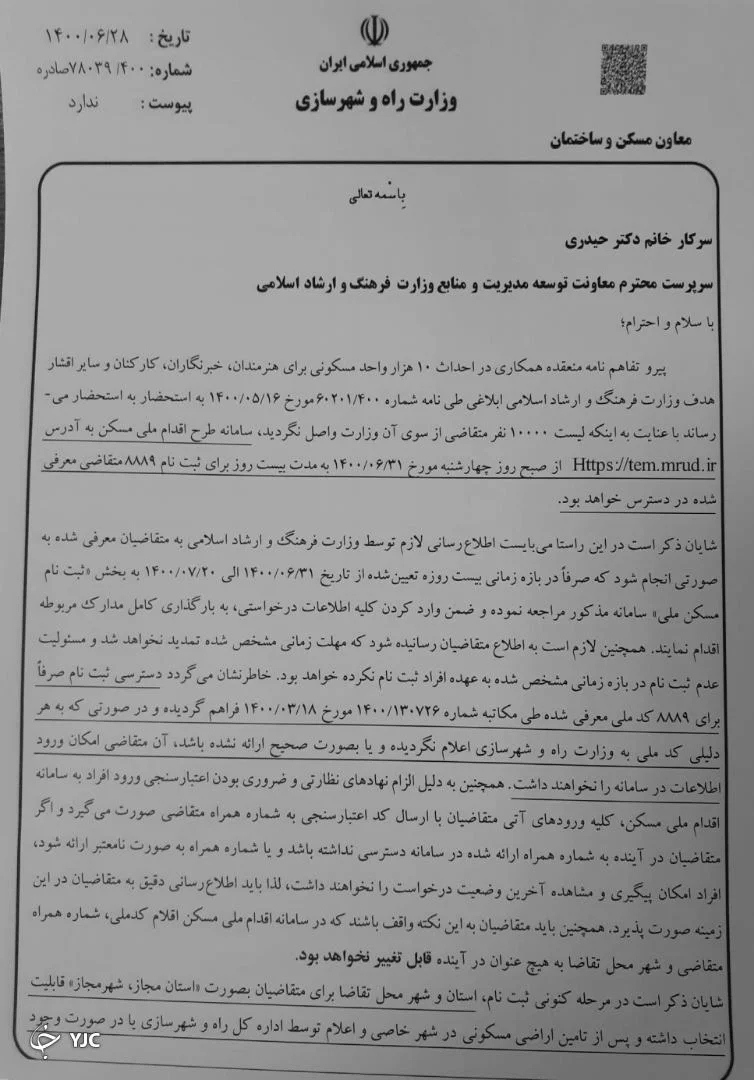 تاریخ : ۱۴۰۰/۰۶/۲۸
شماره: ۷۸۰۳۹/۴۰۰صادره
پیوست : ندارد
جمهوری اسلامی ایران
وزارت راه و شهرسازی
معاون مسکن و ساختمان
باسمه تعالی
سرکار خانم دکتر حیدری
سرپرست محترم معاونت توسعه مدیریت و منابع وزارت فرهنگ و ارشاد اسلامی
با سلام و احترام؛
پیرو تفاهم نامه منعقده همکاری در احداث ۱۰ هزار واحد مسکونی برای هنرمندان، خبرنگاران، کارکنان و سایر اقشار
هدف وزارت فرهنگ و ارشاد اسلامی ابلاغی طی نامه شماره ۶۰۲۰۱/۴۰۰مورخ ۱۴۰۰/۰۵/۱۶ به استحضار به استحضار می-
رساند با عنایت به اینکه لیست ۱۰۰۰۰ نفر متقاضی از سوی آن وزارت واصل نگردید، سامانه طرح اقدام ملی مسکن به آدرس
Https://tem.mrud.ir از صبح روز چهارشنبه مورخ ۱۴۰۰/۰۶/۳۱ به مدت بیست روز برای ثبت نام ۸۸۸۹متقاضی معرفی
شده در دسترس خواهد بود.
شایان ذکر است در این راستا می‌بایست اطلاع‌رسانی لازم توسط وزارت فرهنگ و ارشاد اسلامی به متقاضیان معرفی شده به
صورتی انجام شود که صرفاً در بازه زمانی بیست روزه تعیین‌شده از تاریخ ۱۴۰۰/۰۶/۳۱ الی ۱۴۰۰/۰۷/۲۰ به بخش «ثبت نام
مسکن ملی» سامانه مذکور مراجعه نموده و ضمن وارد کردن کلیه اطلاعات درخواستی، به بارگذاری کامل مدارک مربوطه
اقدام نمایند. همچنین لازم است به اطلاع متقاضیان رسانیده شود که مهلت زمانی مشخص شده تمدید نخواهد شد و مسئولیت
عدم ثبت نام در بازه زمانی مشخص شده به عهده افراد ثبت نام نکرده خواهد بود. خاطرنشان می‌گردد دسترسی ثبت نام صرفاً
برای ۸۸۸۹ کد ملی معرفی شده طی مکاتبه شماره ۱۴۰۰/۱۳۰۷۲۶ مورخ ۱۴۰۰/۰۳/۱۸ فراهم گردیده و در صورتی که به هر
دلیلی کد ملی به وزارت راه و شهرسازی اعلام نگردیده و یا بصورت صحیح ارائه نشده باشد، آن متقاضی امکان ورود
اطلاعات در سامانه را نخواهند داشت. همچنین به دلیل الزام نهادهای نظارتی و ضروری بودن اعتبارسنجی ورود افراد به سامانه
اقدام ملی مسکن، کلیه ورودهای آتی متقاضیان با ارسال کد اعتبارسنجی به شماره همراه متقاضی صورت می‌گیرد و اگر
متقاضیان در آینده به شماره همراه ارائه شده در سامانه دسترسی نداشته باشد و یا شماره همراه به صورت نامعتبر ارائه شود،
افراد امکان پیگیری و مشاهده آخرین وضعیت درخواست را نخواهند داشت، لذا باید اطلاع‌رسانی دقیق به متقاضیان در این
زمینه صورت پذیرد. همچنین باید متقاضیان به این نکته واقف باشند که در سامانه اقدام ملی مسکن اقلام کدملی، شماره همراه
متقاضی و شهر محل تقاضا به هیچ عنوان در آینده قابل تغییر نخواهد بود.
شایان ذکر است در مرحله کنونی ثبت نام، استان و شهر محل تقاضا برای متقاضیان بصورت «استان مجاز، شهرمجاز» قابلیت
انتخاب داشته و پس از تامین اراضی مسکونی در شهر خاصی و اعلام توسط اداره کل راه و شهرسازی یا در صورت وجود
YJC